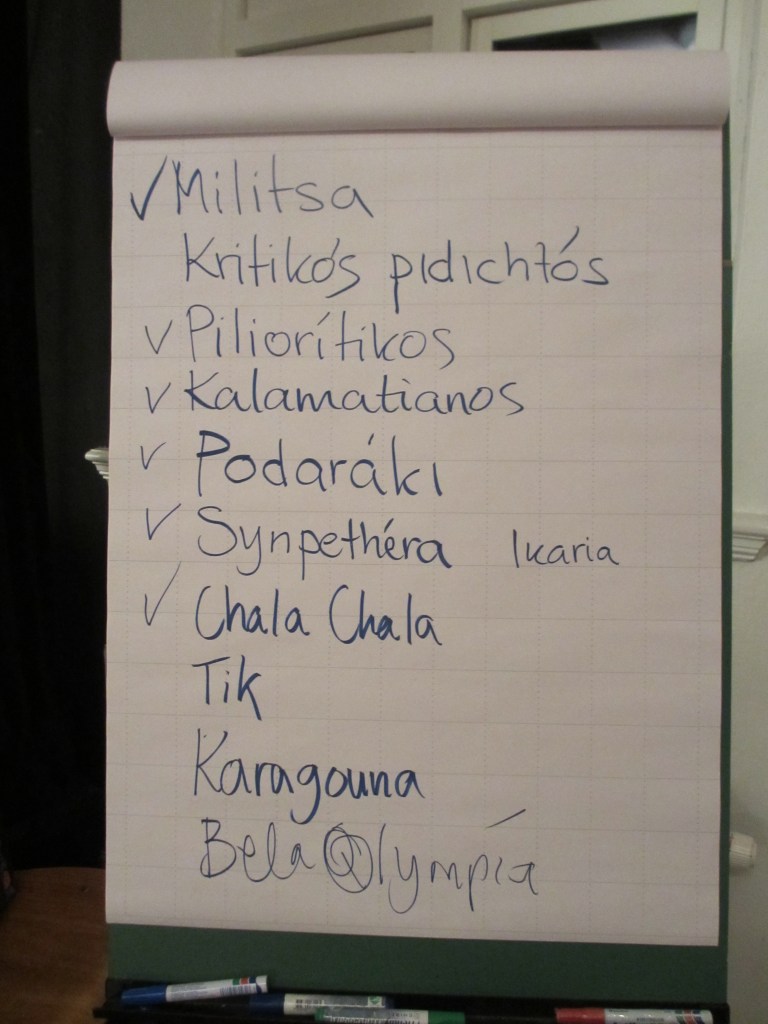 ✓ Militsa
Kritikós pidichtós
✓ Piliorítikos
✓ Kalamatianos
✓ Podaráki
✓ Synpethéra Ikaria
✓ Chala Chala
Tik
Karagouna
Bela Olympía